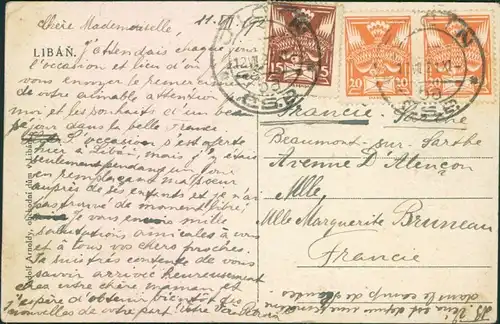 Chère Mademoiselle, 11.VII.
LIBÁŇ.
J'attendais chaque jour
l'occasion et lieu d'où
vous envoyer le remerciement
de votre aimable attention
moi et les souhaits d'un beau
séjour dans la belle France.
l'occasion s'est offerte
hier à Libáň, mais j'y étais
seulement pendant un jour
en remplaçant ma sœur
auprès de ses enfants et je n'ai
pas trouvé de moment libre.
je vous envoie mille
salutations amicales à vous
et à tous vos chers proches.
Je suis très contente de vous
savoir arrivée heureusement
chez votre chère maman et
j'espère d'obtenir bientôt des
nouvelles de votre part. Votre
Adolf Arnoldy, obchodní dům, Libáň
15 15
20 20
Francie
Beaumont-sur-Sarthe
Avenue D'Alençon
Mlle
Mlle Marguerite Bruneau
Francie
dans le camp de